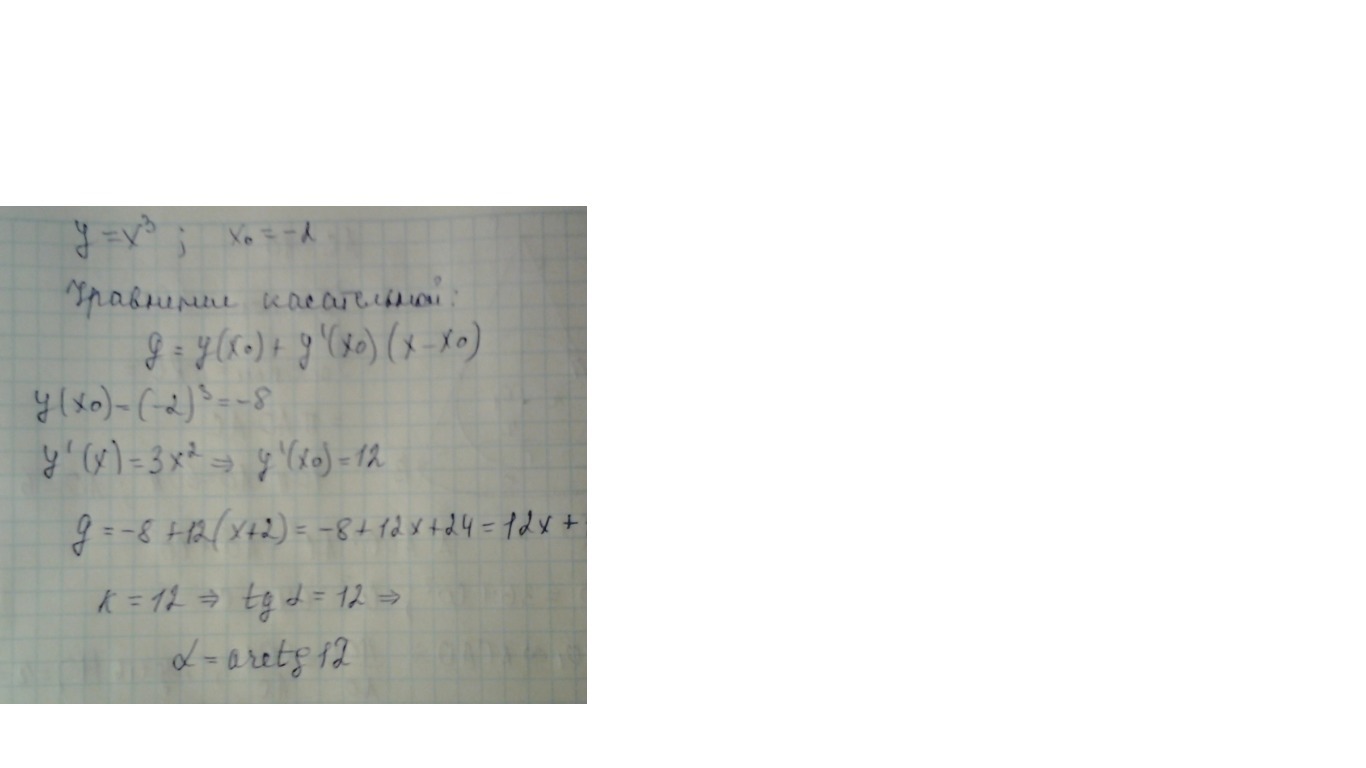 y = x³ ; x₀ = -2
Уравнение касательной:
y = y(x₀) + y'(x₀)(x - x₀)
y(x₀) = (-2)³ = -8
y'(x) = 3x² ⇒ y'(x₀) = 12
y = -8 + 12(x+2) = -8 + 12x + 24 = 12x +
k = 12 ⇒ tg α = 12 ⇒
α = arctg 12